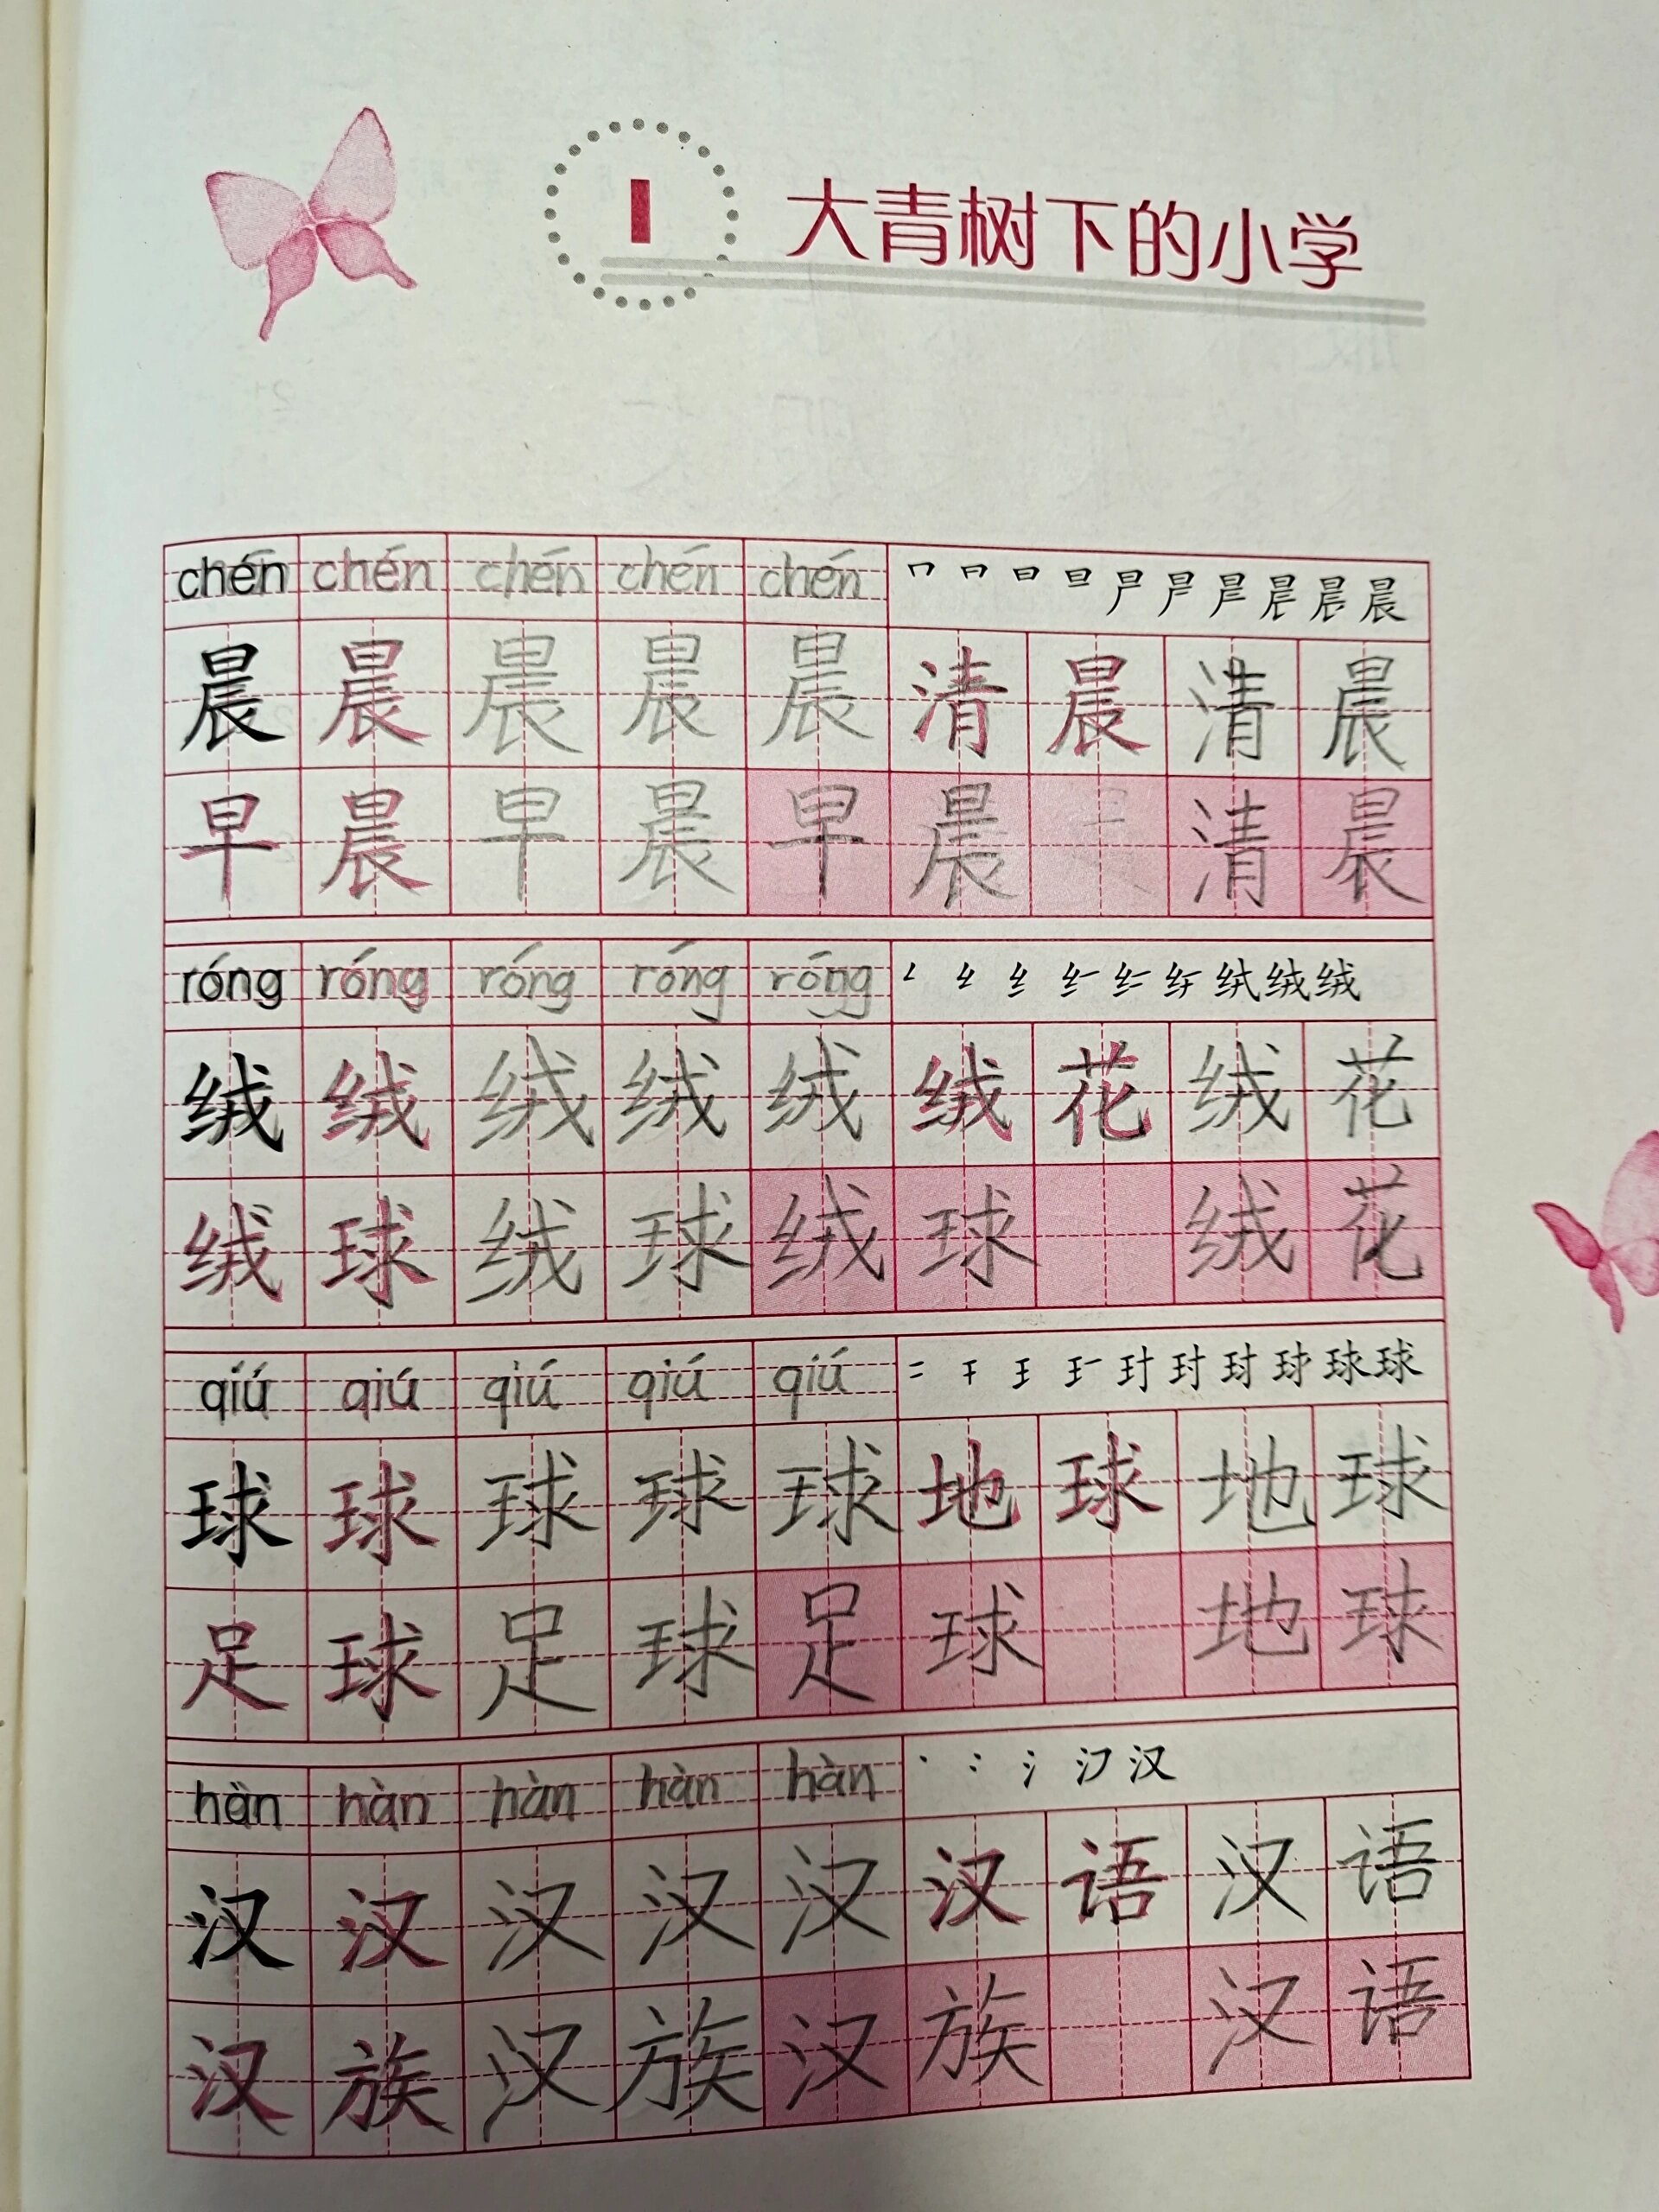 1 大青树下的小学
chén chén chén chén chén
晨 晨 晨 晨 晨 清 晨 清 晨
早 晨 早 晨 早 晨 清 晨
róng róng róng róng róng
绒 绒 绒 绒 绒 绒 花 绒 花
绒 球 绒 球 绒 球 绒 花
qiú qiú qiú qiú qiú
球 球 球 球 球 地 球 地 球
足 球 足 球 足 球 地 球
hàn hàn hàn hàn hàn 汉
汉 汉 汉 汉 汉 汉 语 汉 语
汉 族 汉 族 汉 族 汉 语